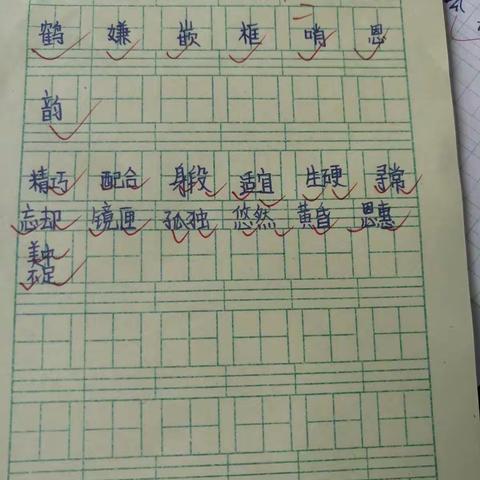 鹤 嫌 嵌 框 哨 恩
韵
精巧 配合 身段 适宜 生硬 寻常
忘却 镜匣 孤独 悠然 黄昏 恩惠
美中
不足